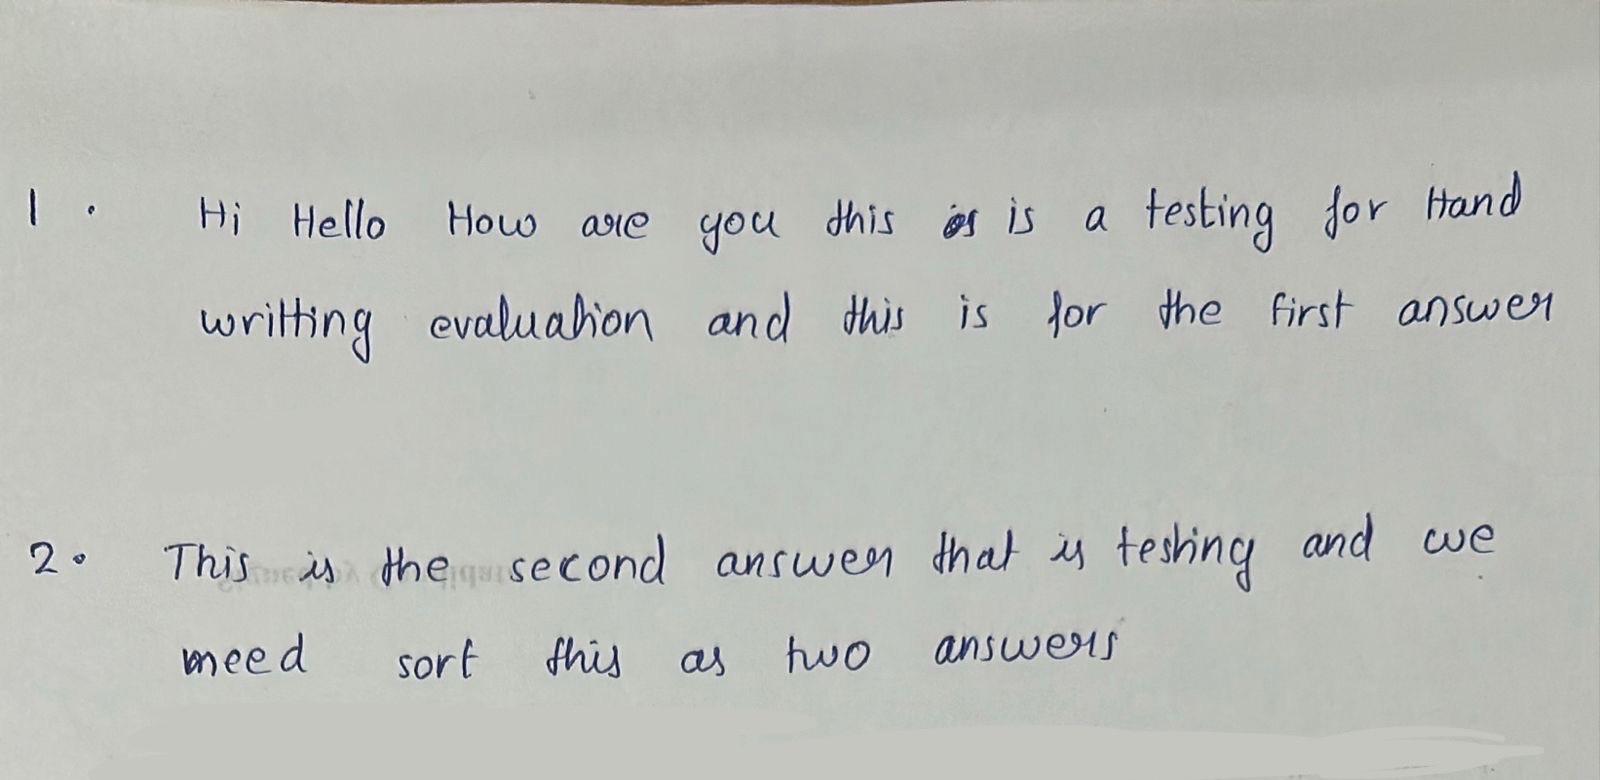 1. Hi Hello How are you this is a testing for Hand
writting evaluation and this is for the first answer
2. This is the second answer that is testing and we
need sort this as two answers